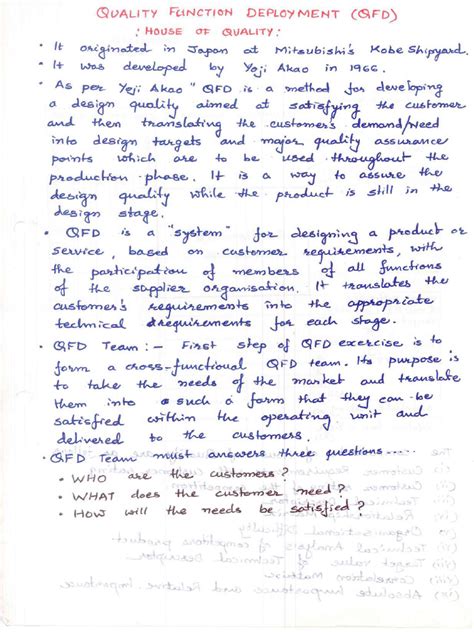 QUALITY FUNCTION DEPLOYMENT (QFD)
: HOUSE OF QUALITY :
• It originated in Japan at Mitsubishi's Kobe Shipyard.
• It was developed by Yoji Akao in 1966.
• As per Yeji Akao " QFD is a method for developing
a design quality aimed at satisfying the customer
and then translating the customer's demand/Need
into design targets and major quality assurance
points which are to be used throughout the
production phase. It is a way to assure the
design quality while the product is still in the
design stage.
• QFD is a "system" for designing a product or
service, based on customer requirements, with
the participation of members of all functions
of the supplier organisation. It translates the
customer's requirements into the appropriate
technical requirements for each stage.
• QFD Team :- First step of QFD exercise is to
form a cross-functional QFD team. Its purpose is
to take the needs of the market and translate
them into such a form that they can be
satisfied within the operating unit and
delivered to the customers.
• QFD Team must answers three questions.....
• WHO are the customers?
• WHAT does the customer need?
• HOW will the needs be satisfied?